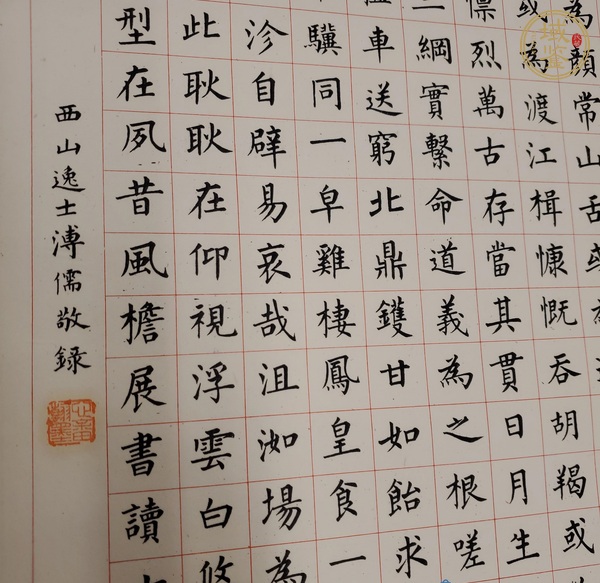 為顏常山舌
或為渡江楫慷慨吞胡羯或
凜烈萬古存當其貫日月生
三綱實繫命道義為之根嗟
車送窮北鼎鑊甘如飴求
驥同一皁雞棲鳳皇食一
沴自辟易哀哉沮洳場為
此耿耿在仰視浮雲白悠
型在夙昔風檐展書讀
西山逸士溥儒敬錄